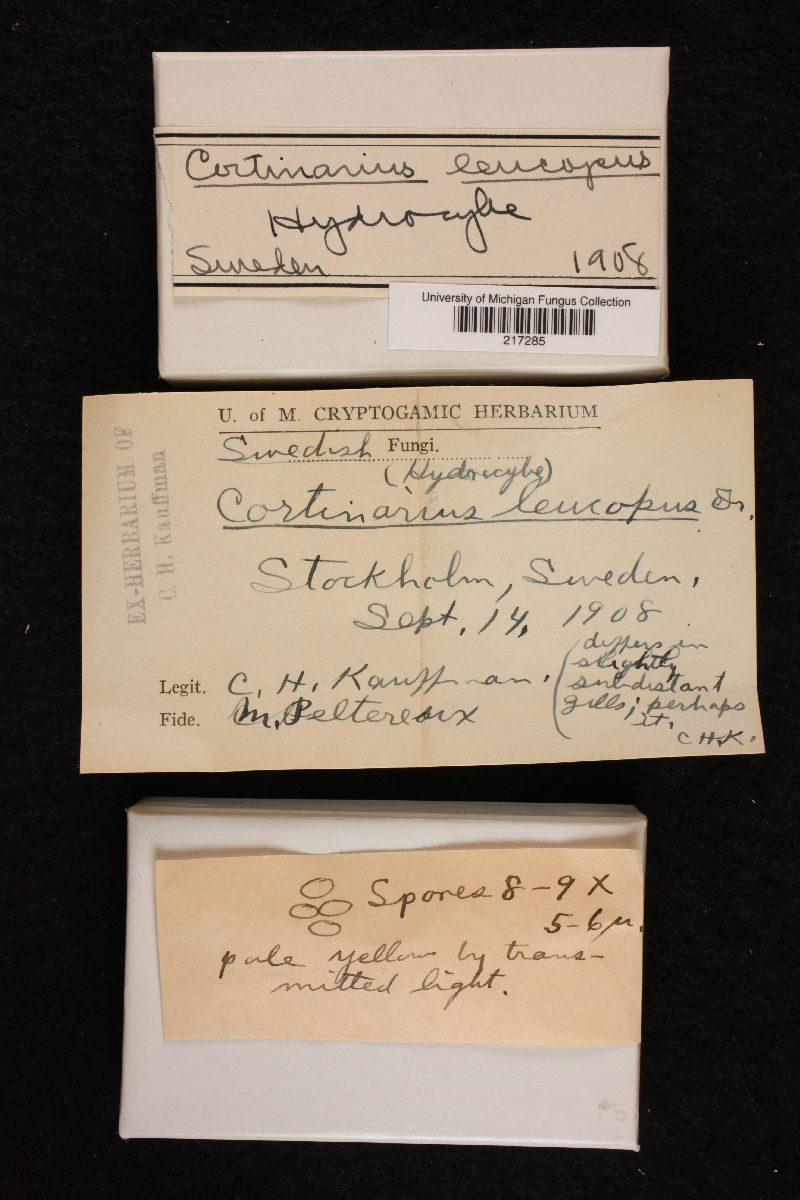 Cortinarius leucopus
Hydrocybe
Sweden 1908
University of Michigan Fungus Collection
217285
EX-HERBARIUM OF
C. H. Kauffman
U. of M. CRYPTOGAMIC HERBARIUM
Swedish Fungi.
(Hydrocybe)
Cortinarius leucopus Fr.
Stockholm, Sweden,
Sept. 14, 1908
Legit. C. H. Kauffman.
Fide. M. Peltereaux
(differs in
slightly
subdistant
gills; perhaps
it.
C H.K.
Spores 8-9 X
5-6 µ.
pale yellow by trans-
mitted light.